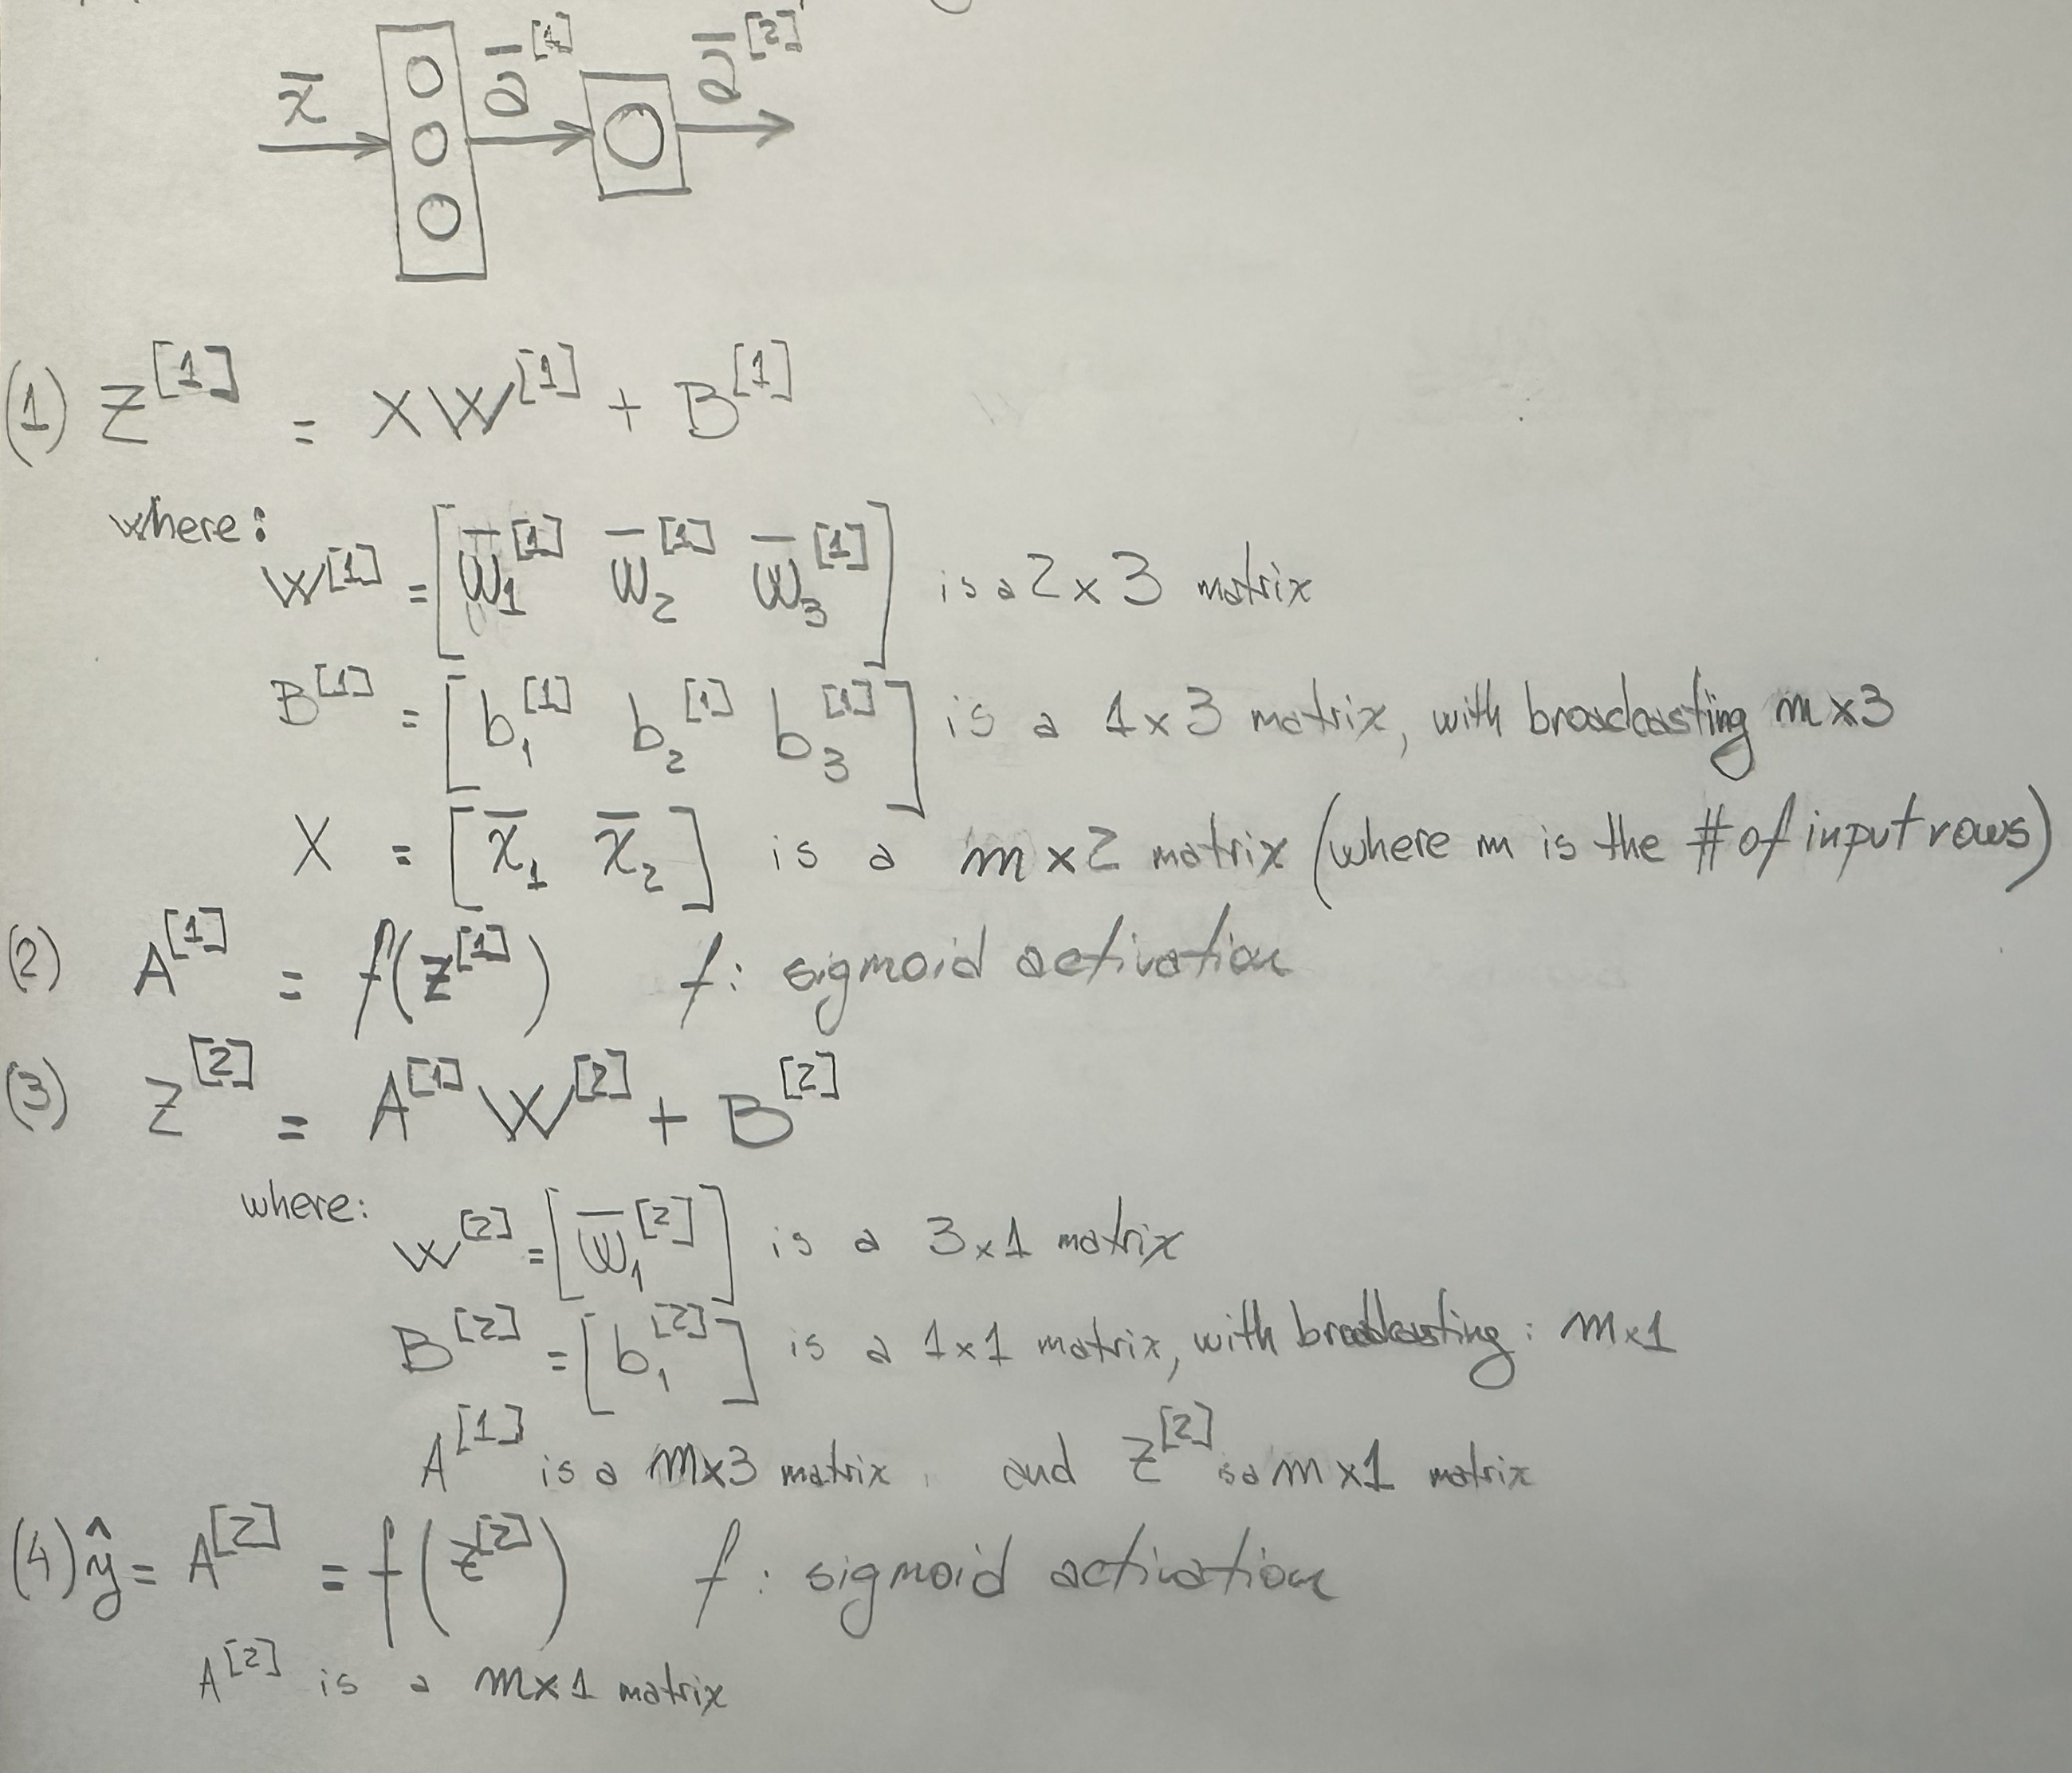 x̄ ā^[1] ā^[2]
(1) Z^[1] = X W^[1] + B^[1]
where:
W^[1] = [w̄₁^[1] w̄₂^[1] w̄₃^[1]] is a 2 x 3 matrix
B^[1] = [b₁^[1] b₂^[1] b₃^[1]] is a 1 x 3 matrix, with broadcasting m x 3
X = [x̄₁ x̄₂] is a m x 2 matrix (where m is the # of input rows)
(2) A^[1] = f(Z^[1]) f: sigmoid activation
(3) Z^[2] = A^[1] W^[2] + B^[2]
where:
W^[2] = [w̄₁^[2]] is a 3 x 1 matrix
B^[2] = [b₁^[2]] is a 1 x 1 matrix, with broadcasting: m x 1
A^[1] is a m x 3 matrix and Z^[2] is a m x 1 matrix
(4) ŷ = A^[2] = f(z^[2]) f: sigmoid activation
A^[2] is a m x 1 matrix